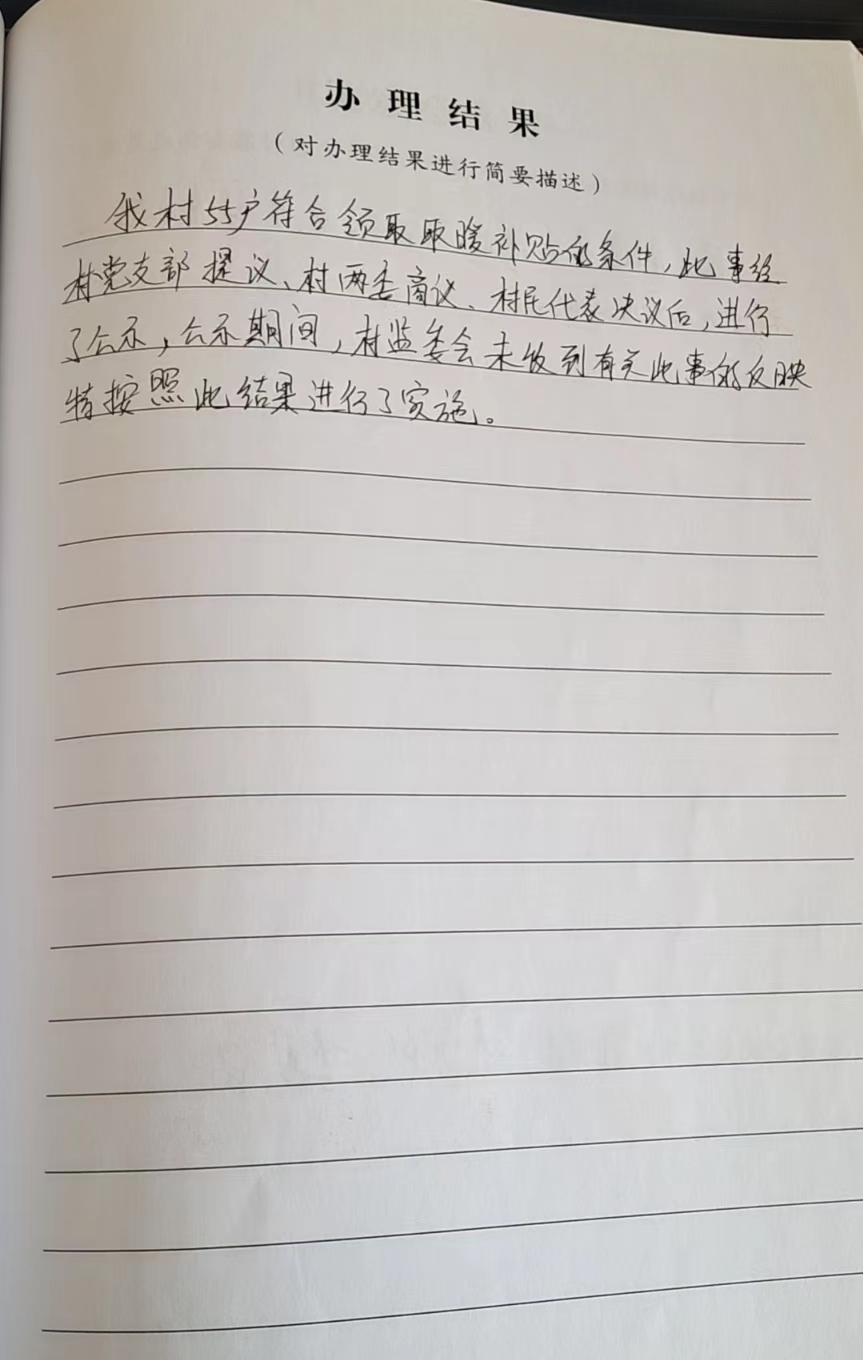 办理结果
（对办理结果进行简要描述）
我村55户符合领取取暖补贴的条件，此事经
村党支部提议、村两委商议、村民代表决议后，进行
了公示，公示期间，村监委会未收到有关此事的反映
特按照此结果进行了实施。